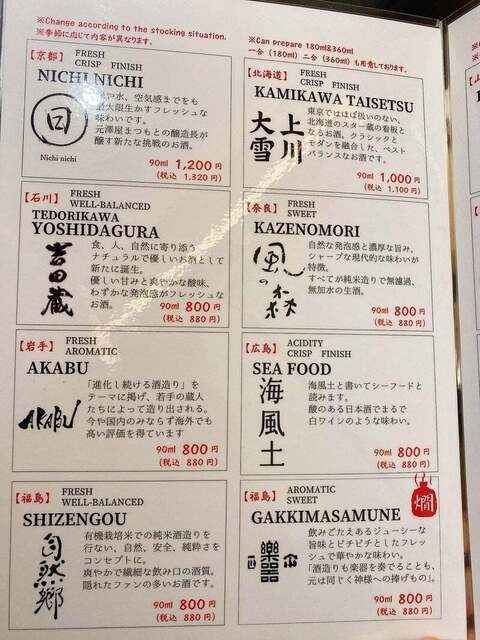 ※Change according to the stocking situation.
※季節に応じて内容が異なります。
【京都】
FRESH
CRISP FINISH
NICHI NICHI
日
Nichi nichi
や水、空気感までをも
最大限生かすフレッシュな
味わいです。
元澤屋まつもとの醸造長が
醸す新たな挑戦のお酒。
90ml 1,200円
(税込 1,320円)
【石川】
FRESH
WELL-BALANCED
TEDORIKAWA
YOSHIDAGURA
吉田蔵
食、人、自然に寄り添う
ナチュラルで優しいお酒として
新たに誕生。
優しい甘みと爽やかな酸味、
わずかな発泡感がフレッシュな
お酒。
90ml 800円
(税込 880円)
【岩手】
FRESH
AROMATIC
AKABU
AKABU
「進化し続ける酒造り」を
テーマに掲げ、若手の蔵人
たちによって造り出される。
今や国内のみならず海外でも
高い評価を得ています
90ml 800円
(税込 880円)
【福島】
FRESH
WELL-BALANCED
SHIZENGOU
自然郷
有機栽培米での純米酒造りを
行ない、自然、安全、純粋さを
コンセプトに。
爽やかで繊細な飲み口の酒質。
隠れたファンの多いお酒です。
90ml 800円
(税込 880円)
※Can prepare 180ml&360ml
一合(180ml)二合(360ml)も用意しております。
【北海道】
FRESH
CRISP FINISH
KAMIKAWA TAISETSU
上川
大雪
東京ではほぼ扱いのない、
北海道のスター蔵の看板と
なるお酒。クラシックと
モダンを融合した、ベスト
バランスなお酒です。
90ml 1,000円
(税込 1,100円)
【奈良】
FRESH
SWEET
KAZENOMORI
風の森
自然な発泡感と濃厚な旨み、
シャープな現代的な味わいが
特徴。
すべてが純米造りで無濾過、
無加水の生酒。
90ml 800円
(税込 880円)
【広島】
ACIDITY
CRISP FINISH
SEA FOOD
海風土
海風土と書いてシーフードと
読みます。
酸のある日本酒でまるで
白ワインのような味わい。
90ml 800円
(税込 880円)
【福島】
AROMATIC
SWEET
燗
GAKKIMASAMUNE
楽器
飲みごたえあるジューシーな
旨味とピチピチとしたフレッ
シュで華やかな味わい。
「酒造りも楽器を奏でることも、
元は同じく神様への捧げもの」。
90ml 800円
(税込 880円)